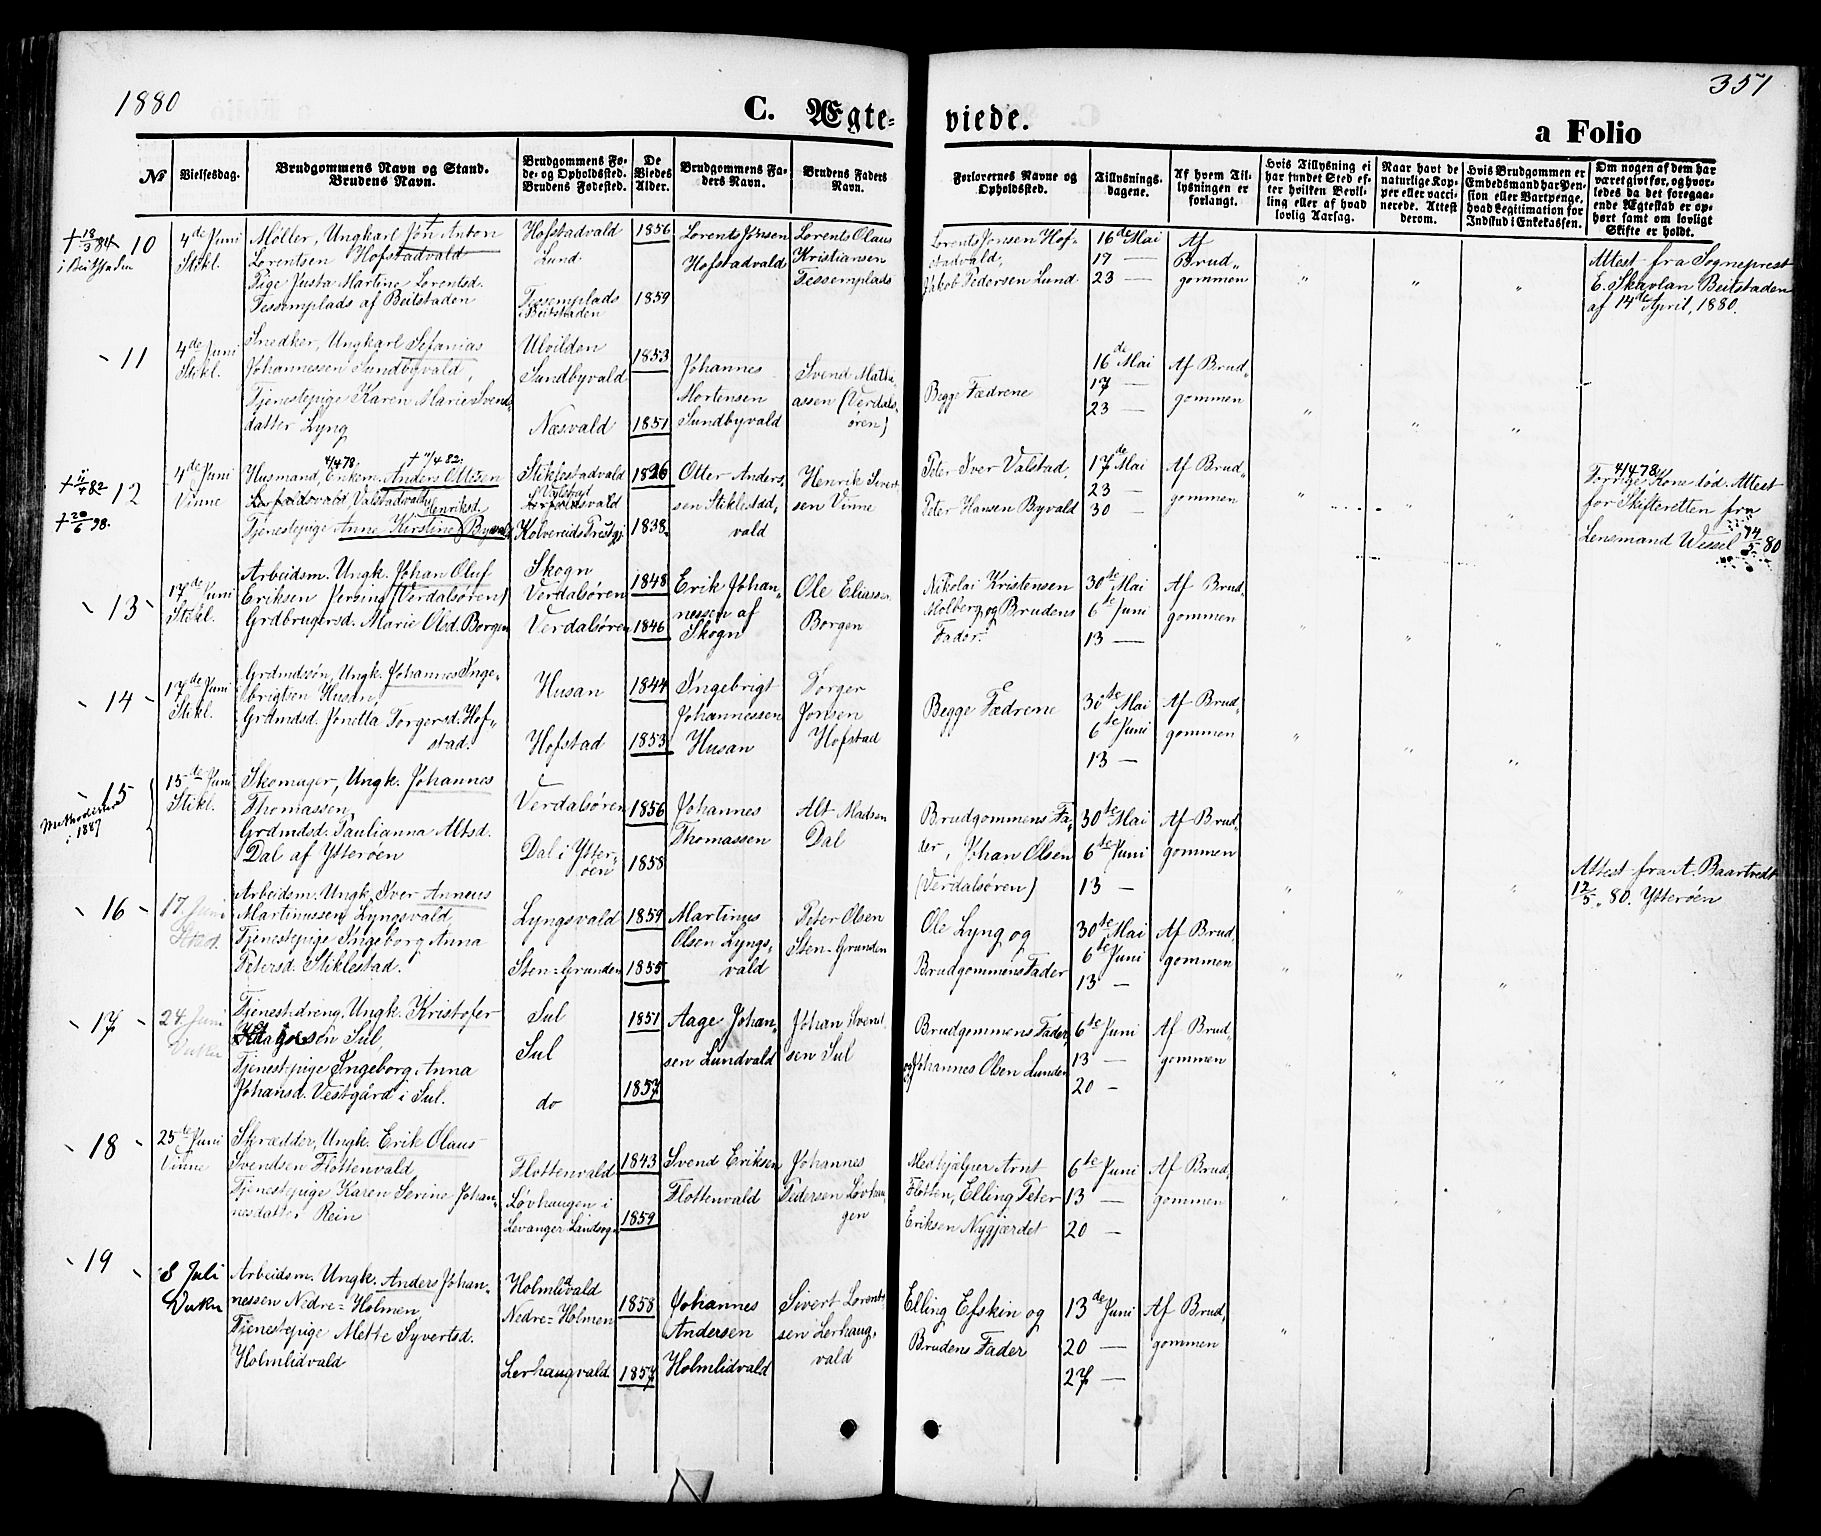 1880
351
C. Ægte=
viede.
a Folio
No
Vielsesdag.
Brudgommens Navn og Stand.
Brudens Navn.
Brudgommens Fø-
de- og Opholdssted.
Brudens Fødested.
De
Viedes
Alder.
Brudgommens Fa-
ders Navn.
Brudens Faders
Navn.
Forlovernes Navne og
Opholdssted.
Tillysnings-
dagene.
Af hvem Til-
lysningen er
forlangt.
Hvis Tillysning ei
har fundet Sted ef-
ter hvilken Bevil-
ling eller af hvad
lovlig Aarsag.
Naar havt de
naturlige Kop-
per eller vacci-
nerede. Attest
derom.
Hvis Brudgommen er
Embedsmand har Pen-
sion eller Vartpenge,
hvad Legitimation for
Indskud i Enkekassen.
Om nogen af dem har
været givt før, og hvor-
ledes da det foregaa-
ende Ægteskab er op-
hørt samt om lovligt
Skifte er holdt.
† 18/3 84
i Beitstaden
10
4de Juni
Stikl.
Møller, Ungkarl Jon Anton
Lorentsen Hofstadvald
Pige Justa Martine Lorentsd.
Tessemplads af Beitstaden
Hofstadvald
Lund
Tessemplads
i Beitstaden
1856
1859
Lorents Jonsen
Hofstadvald
Lorents Olaus
Kristiansen
Tessemplads
Lorents Jonsen Hof-
stadvald,
Jakob Pedersen Lund
16de Mai
17 —
23 —
Af
Brud„
gommen
Attest fra Sogneprest
E. Skavlan Beitstaden
af 14de April, 1880.
11
4de Juni
Stikl.
Snedker, Ungkarl Sefanias
Johannessen Sundbyvald,
Tjenestepige Karen Marie Svend„
datter Lyng
Ulvilden
Sundbyvald
Næsvald
1853
1851
Johannes
Mortensen
Sundbyvald
Svend Mathi„
assen (Verdals„
ören)
Begge Fædrene
16de Mai
17 —
23 —
Af Brud„
gommen
† 11/4 82
† 20/6 98.
12
4de Juni
Vinne
4/4 78 † 11/4 82.
Husmand, Enkem. Anders Ottesen
Valstadvald Henriksd.
Tjenestepige Anne Kirstine Byvald
Stiklestadvald
Kolvereids Prestgj.
1826
1838
Otter Anders„
sen Stiklestad„
vald
Henrik Sivert„
sen Vinne
Peter Iver Valstad,
Peter Hansen Byvald
17de Mai
23 —
30 —
Af Brud„
gommen
4/4 78
Forrige Kone död. Attest
for Skifteretten fra
Lensmand Wessel 14/5 80
13
17de Juni
Stikl.
Arbeidsm. Ungk. Johan Oluf
Eriksen Persing (Verdalsören)
Grdbrugersd. Marie Olsd. Borgen
Skogn
Verdalsören
Verdalsören
1848
1846
Erik Johan„
nessen af
Skogn
Ole Eliassen
Borgen
Nikolai Kristensen
Holberg og Brudens
Fader.
30te Mai
6te Juni
13 —
Af Brud„
gommen
14
17de Juni
Stikl.
Grdmdssön, Ungk. Johannes Inge„
brigtsen Husan,
Grdmdsd. Jonetta Torgersd. Hof„
stad.
Husan
Hofstad
1844
1853
Ingebrigt
Johannessen
Husan
Torger
Jonsen
Hofstad
Begge Fædrene
30te Mai
6te Juni
13 —
Af Brud„
gommen
15
Methodister
1887
15de Juni
Stikl.
Skomager, Ungk. Johannes
Thomassen,
Grdmdsd. Paulianna Altsd.
Dal af Ytteröen
Verdalsören
Dal i Ytter„
öen
1856
1858
Johannes
Thomassen
Alt Madsen
Dal
Brudgommens Fa„
der, Johan Olsen
(Verdalsören)
30te Mai
6te Juni
13 —
Af Brud„
gommen
Attest fra A. Baartvedt
12/5. 80. Ytteröen
16
17. Juni
Stikl.
Arbeidsm. Ungk. Iver Anneus
Martinussen Lyngsvald,
Tjenestepige Ingeborg Anna
Petersd. Stiklestad.
Lyngsvald
Sten=Grunden
1859
1855
Martinus
Olsen Lyngs„
vald
Peter Olsen
Sten=Grunden
Ole Lyng og
Brudgommens Fader
30te Mai
6te Juni
13 —
Af Brud„
gommen
17
24. Juni
Vuku
Tjenestedreng, Ungk. Kristofer
Aagesön Sul,
Tjenestepige Ingeborg Anna
Johansd. Vestgård i Sul.
Sul
Sul
do
1851
1857
Aage Johan„
sen Lundvald
Johan Svend„
sen Sul
Brudgommens Fader,
og Johannes Olsen Lunden
6te Juni
13 —
20 —
Af Brud„
gommen
18
25te Juni
Vinne
Skrædder, Ungk. Erik Olaus
Svendsen Flottenvald,
Tjenestepige Karen Serine Johan„
nesdatter Rein
Flottenvald
Løvhaugen i
Levanger Landsogn
1843
1859
Svend Eriksen
Flottenvald
Johannes
Pedersen Lövhau„
gen
Medhjælper Arnt
Flotten, Elling Peter
Eriksen Nygjærdet
6te Juni
13 —
20 —
Af Brud„
gommen
19
8 Juli
Vuku
Arbeidsm. Ungk. Anders Johan„
nessen Nedre=Holmen,
Tjenestepige Mette Syvertsd.
Holmlidvald
Holmlidvald
Nedre=Holmen
Lerhaugvald.
1858
1857
Johannes
Andersen
Holmlidvald
Sivert Lorents„
sen Lerhaug„
vald
Elling Efskin og
Brudens Fader
13de Juni
20 —
27 —
Af Brud„
gommen